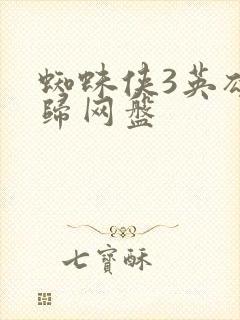 蜘蛛侠3英雄
归网盘
七寶酥